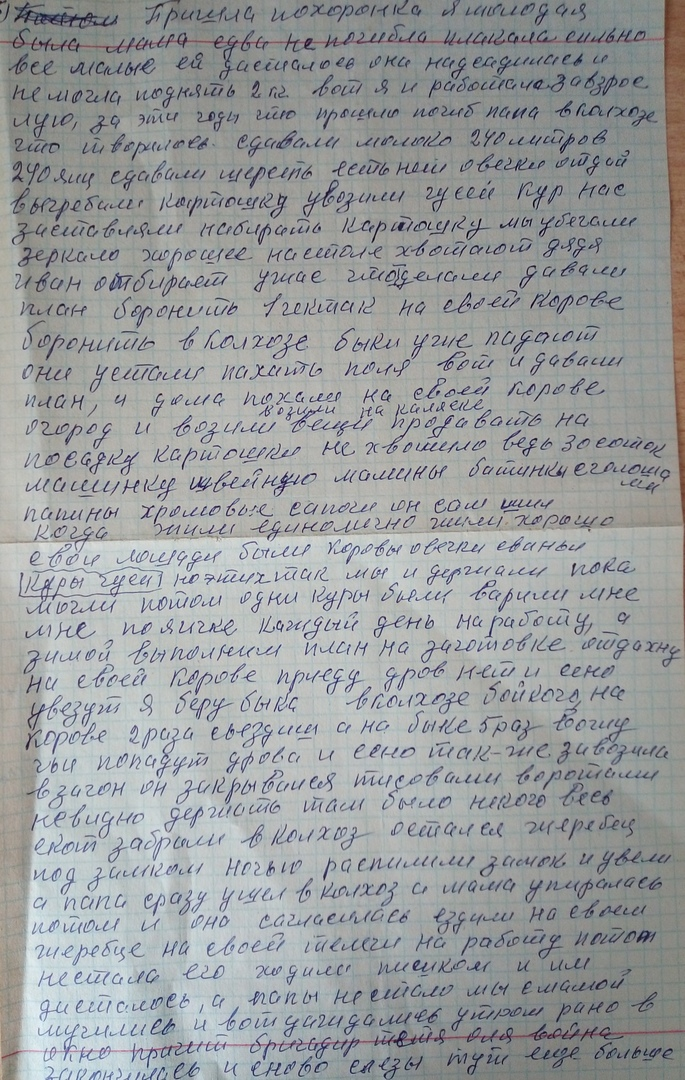 5) Потом Пришла похоронка я молодая
была мама едва не погибла плакала сильно
все малые ей досталось она надсадилась и
не могла поднять 2 кг. вот я и работала за взрос
лую, за эти годы что прошло погиб папа в колхозе
что творилось. сдавали молоко 240 литров
240 яиц сдавали шерсть есть нет овечки отдай
выгребали картошку увозили гусей кур нас
заставляли набирать картошку мы убегали
зеркало хорошее на столе хвотают дядя
Иван отбирает ужас что делали давали
план боронить 1 гектак на своей корове
боронить в колхозе быки уже падают
они устали пахать поля вот и давали
план, и дома похали на своей корове
возили на каляске
огород и возили вещи продавать на
посадку картошки не хвотило ведь 30 соток
машинку швейную мамины батинки с голоша
ми
папины хромовые сапоги он сам шил
когда жили единолично жили хорошо
свои лошади были коровы овечки свиньи
куры гуси но этих так мы и держали пока
могли потом одни куры были варили мне
мне по яичке каждый день на работу, а
зимой выполним план на заготовке отдахну
на своей корове приеду дров нет и сено
увезут я беру быка в колхозе бойкого, на
корове 2 раза сьездиш а на быке 5 раз вожу
чьи попадут дрова и сено так-же завозила
в загон он закрывался тисовами воротами
невидно держать там было некого весь
скот забрали в колхоз остался жеребец
под замком ночью распилили замок и увели
а папа сразу ушел в колхоз а мама упиралась
потом и она сагласилась ездили на своем
жеребце на своей телеги на работу потом
нестала его ходили пишком и им
дисталось, а папы нестало мы с мамой
мучились и вот дажидались утром рано в
окно пришли бригадир тетя оля война
закончилась и сново слезы тут еще больше